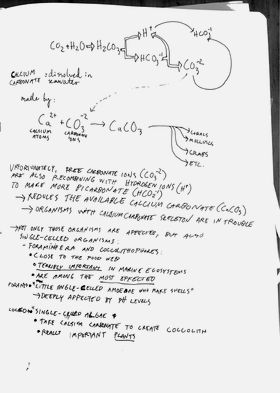 H⁺ HCO₃⁻¹
CO₂ + H₂O ⇌ H₂CO₃
HCO₃⁻¹ CO₃⁻²
CALCIUM CARBONATE = dissolved in seawater
made by:
Ca²⁺ + CO₃⁻² → CaCO₃
CALCIUM ATOMS CARBONATE IONS
→ CORALS
→ MOLLUSCS
→ CRABS
→ ETC.
UNFORTUNATELY, FREE CARBONATE IONS (CO₃⁻²)
ARE ALSO RECOMBINING WITH HYDROGEN IONS (H⁺)
TO MAKE MORE BICARBONATE (HCO₃⁻¹)
→ REDUCES THE AVAILABLE CALCIUM CARBONATE (CaCO₃)
→ ORGANISMS WITH CALCIUM CARBONATE SKELETON ARE IN TROUBLE
→ NOT ONLY THOSE ORGANISMS ARE AFFECTED, BUT ALSO
SINGLE-CELLED ORGANISMS:
- FORAMINIFERA AND COCCOLITHOPHORES:
• CLOSE TO THE FOOD WEB
• TERRIBLY IMPORTANT IN MARINE ECOSYSTEMS
• ARE AMONG THE MOST EFFECTED
"LITTLE SINGLE-CELLED AMOEBAE WHO MAKE SHELLS"
→ DEEPLY AFFECTED BY pH LEVELS
SINGLE-CELLED ALGAE
• TAKE CALCIUM CARBONATE TO CREATE COCCOLITH
• REALLY IMPORTANT PLANTS